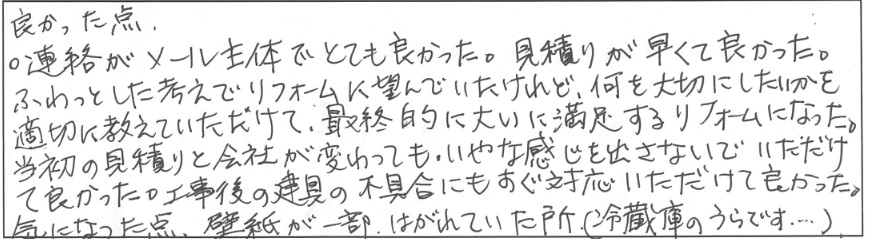 良かった点.
○連絡がメール主体でとても良かった。見積りが早くて良かった。
ふわっとした考えでリフォームに望んでいたけれど、何を大切にしたいかを
適切に教えていただけて、最終的に大いに満足するリフォームになった。
当初の見積りと会社が変わっても、いやな感じを出さないでいただけ
て良かった。工事後の建具の不具合にもすぐ対応いただけて良かった。
気になった点、壁紙が一部、はがれていた所.(冷蔵庫のうらです....)